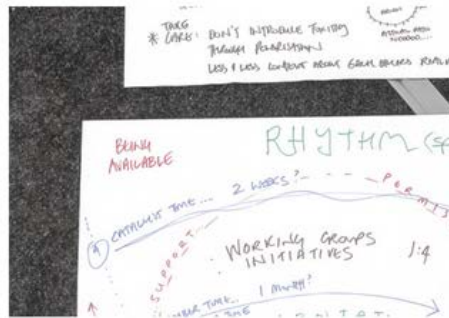 TAKE
* CARE: DON'T INTRODUCE TOXICITY
THROUGH POLARISATION
LESS & LESS CONTENT ABOUT EACH OTHERS
BEING
AVAILABLE
RHYTHM (SP
CATALYST TIME... 2 WEEKS?
PERMIS
SUPPORT
WORKING GROUPS
INITIATIVES
1:4
1 MONTH?
TIME